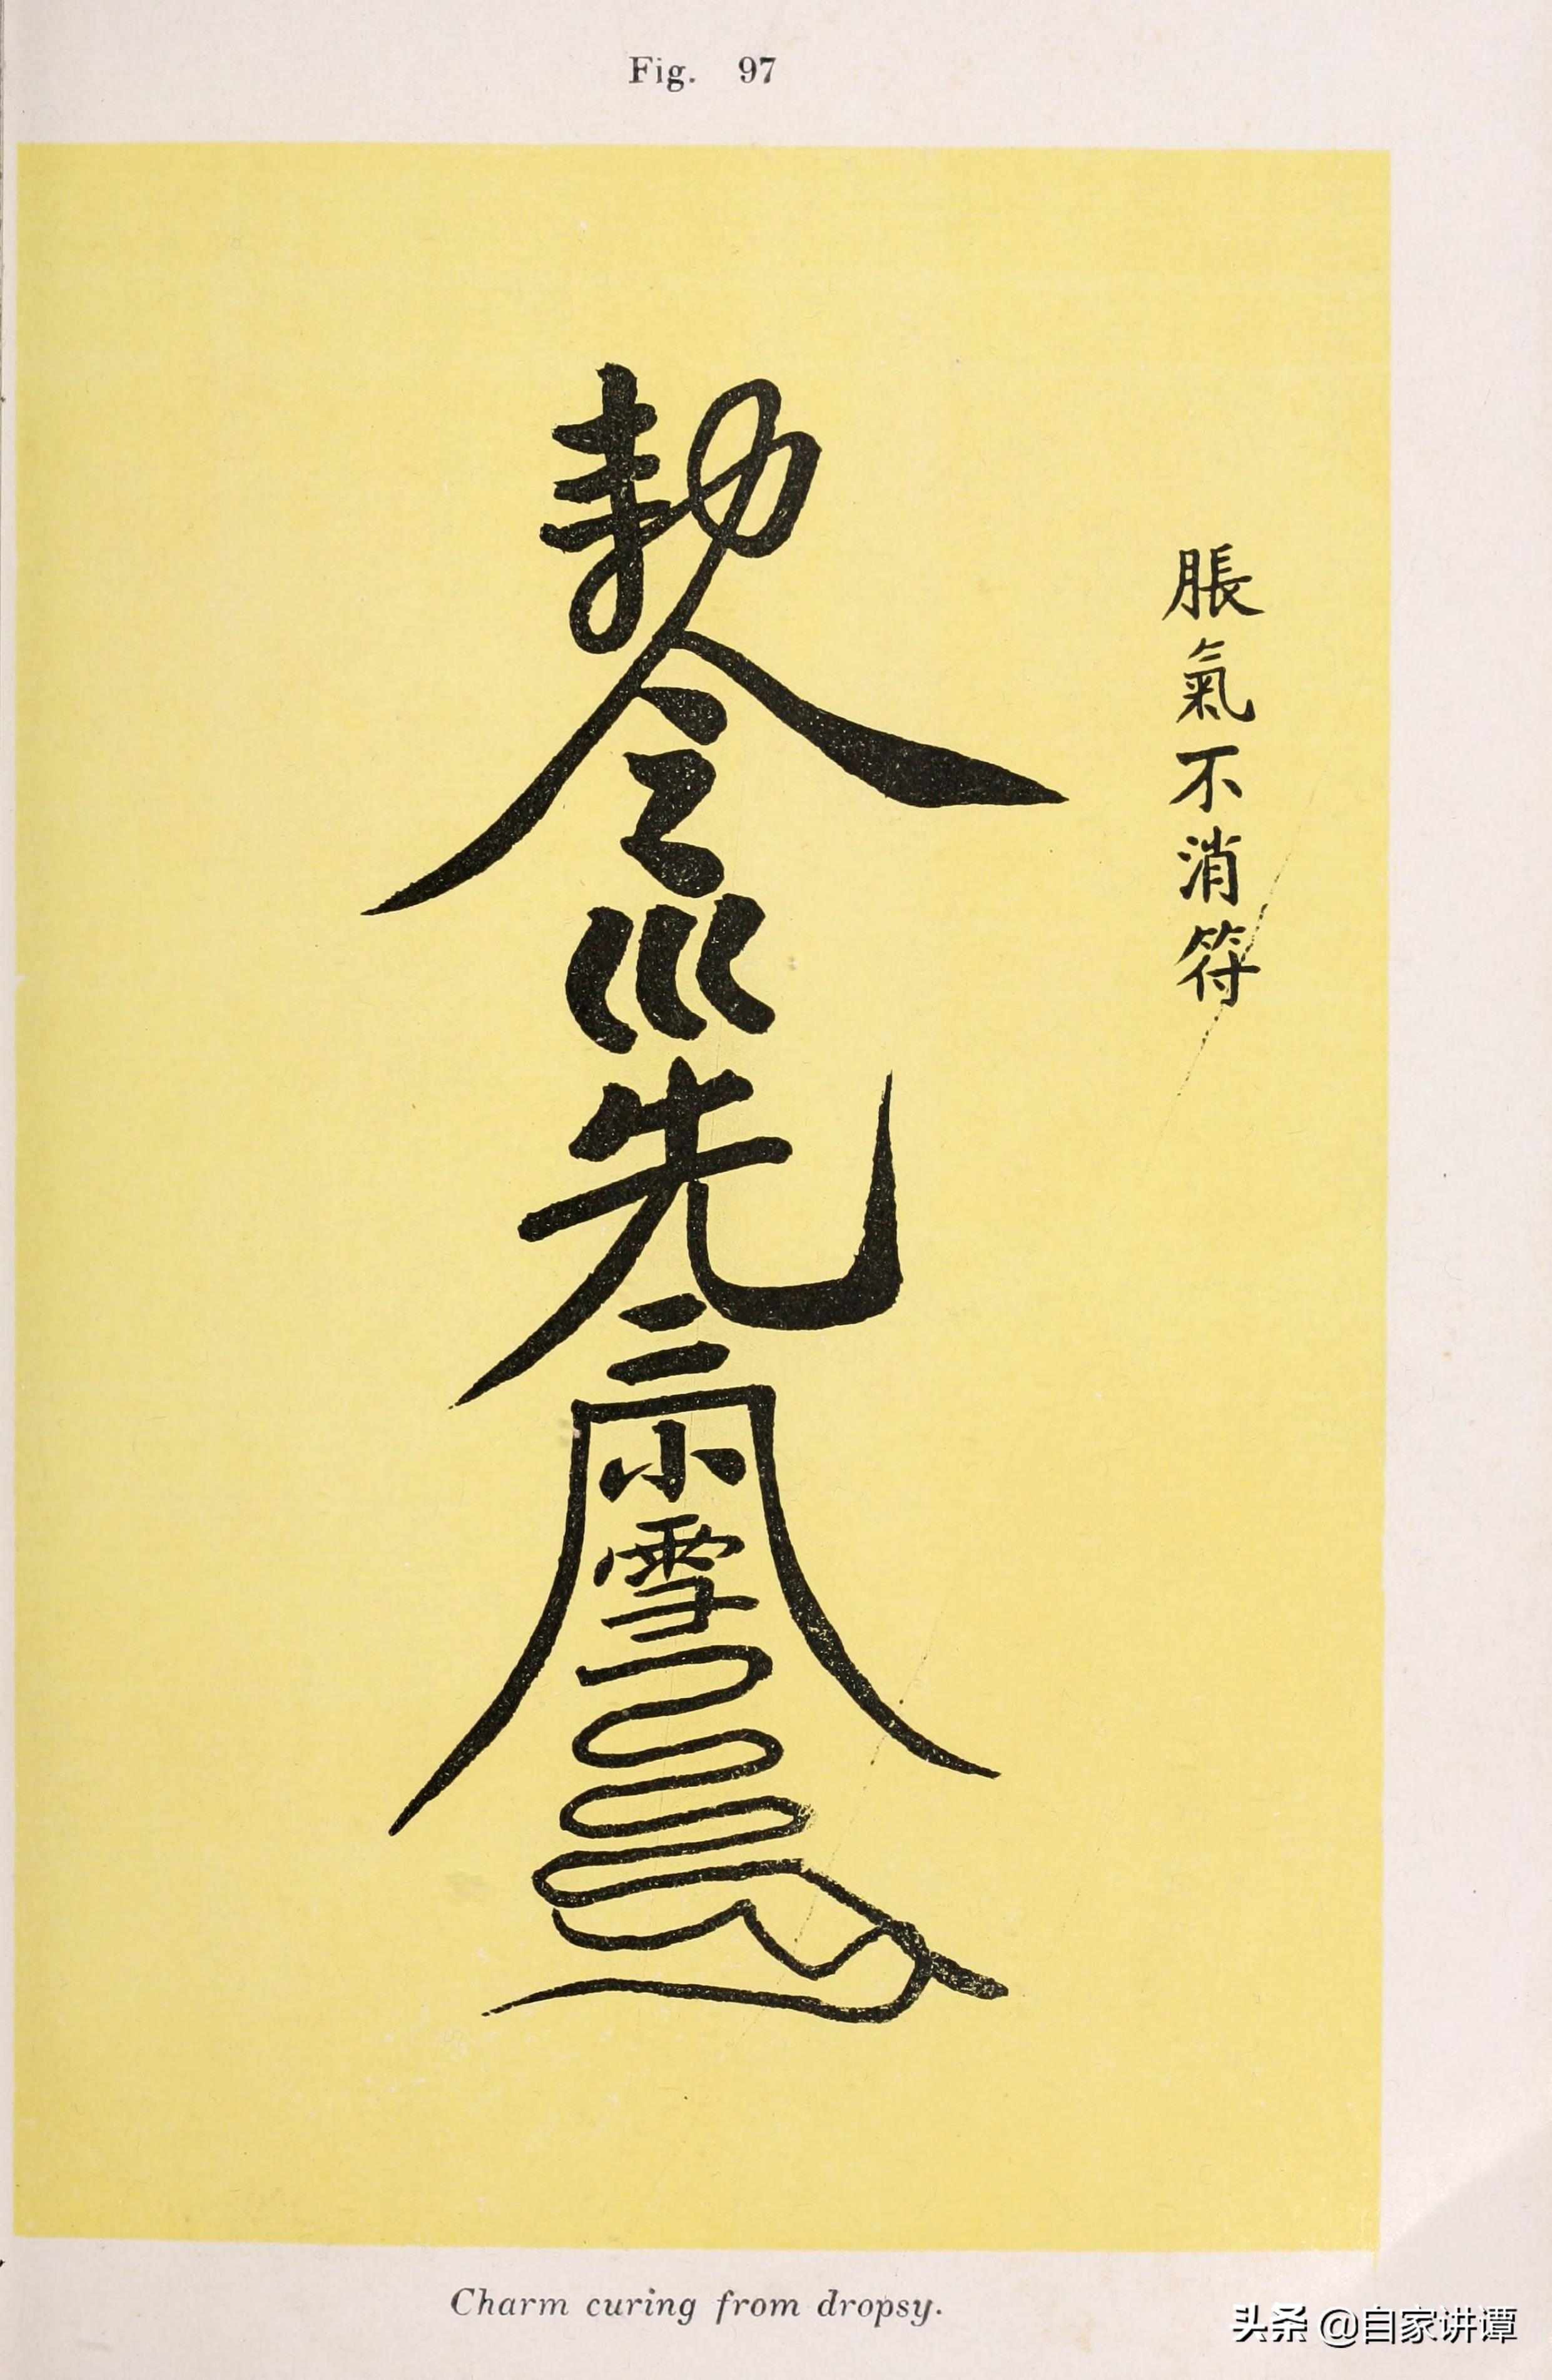 Fig. 97
脹氣不消符
勅令
巛
先
小
雪
Charm curing from dropsy.
头条 @自家讲谭